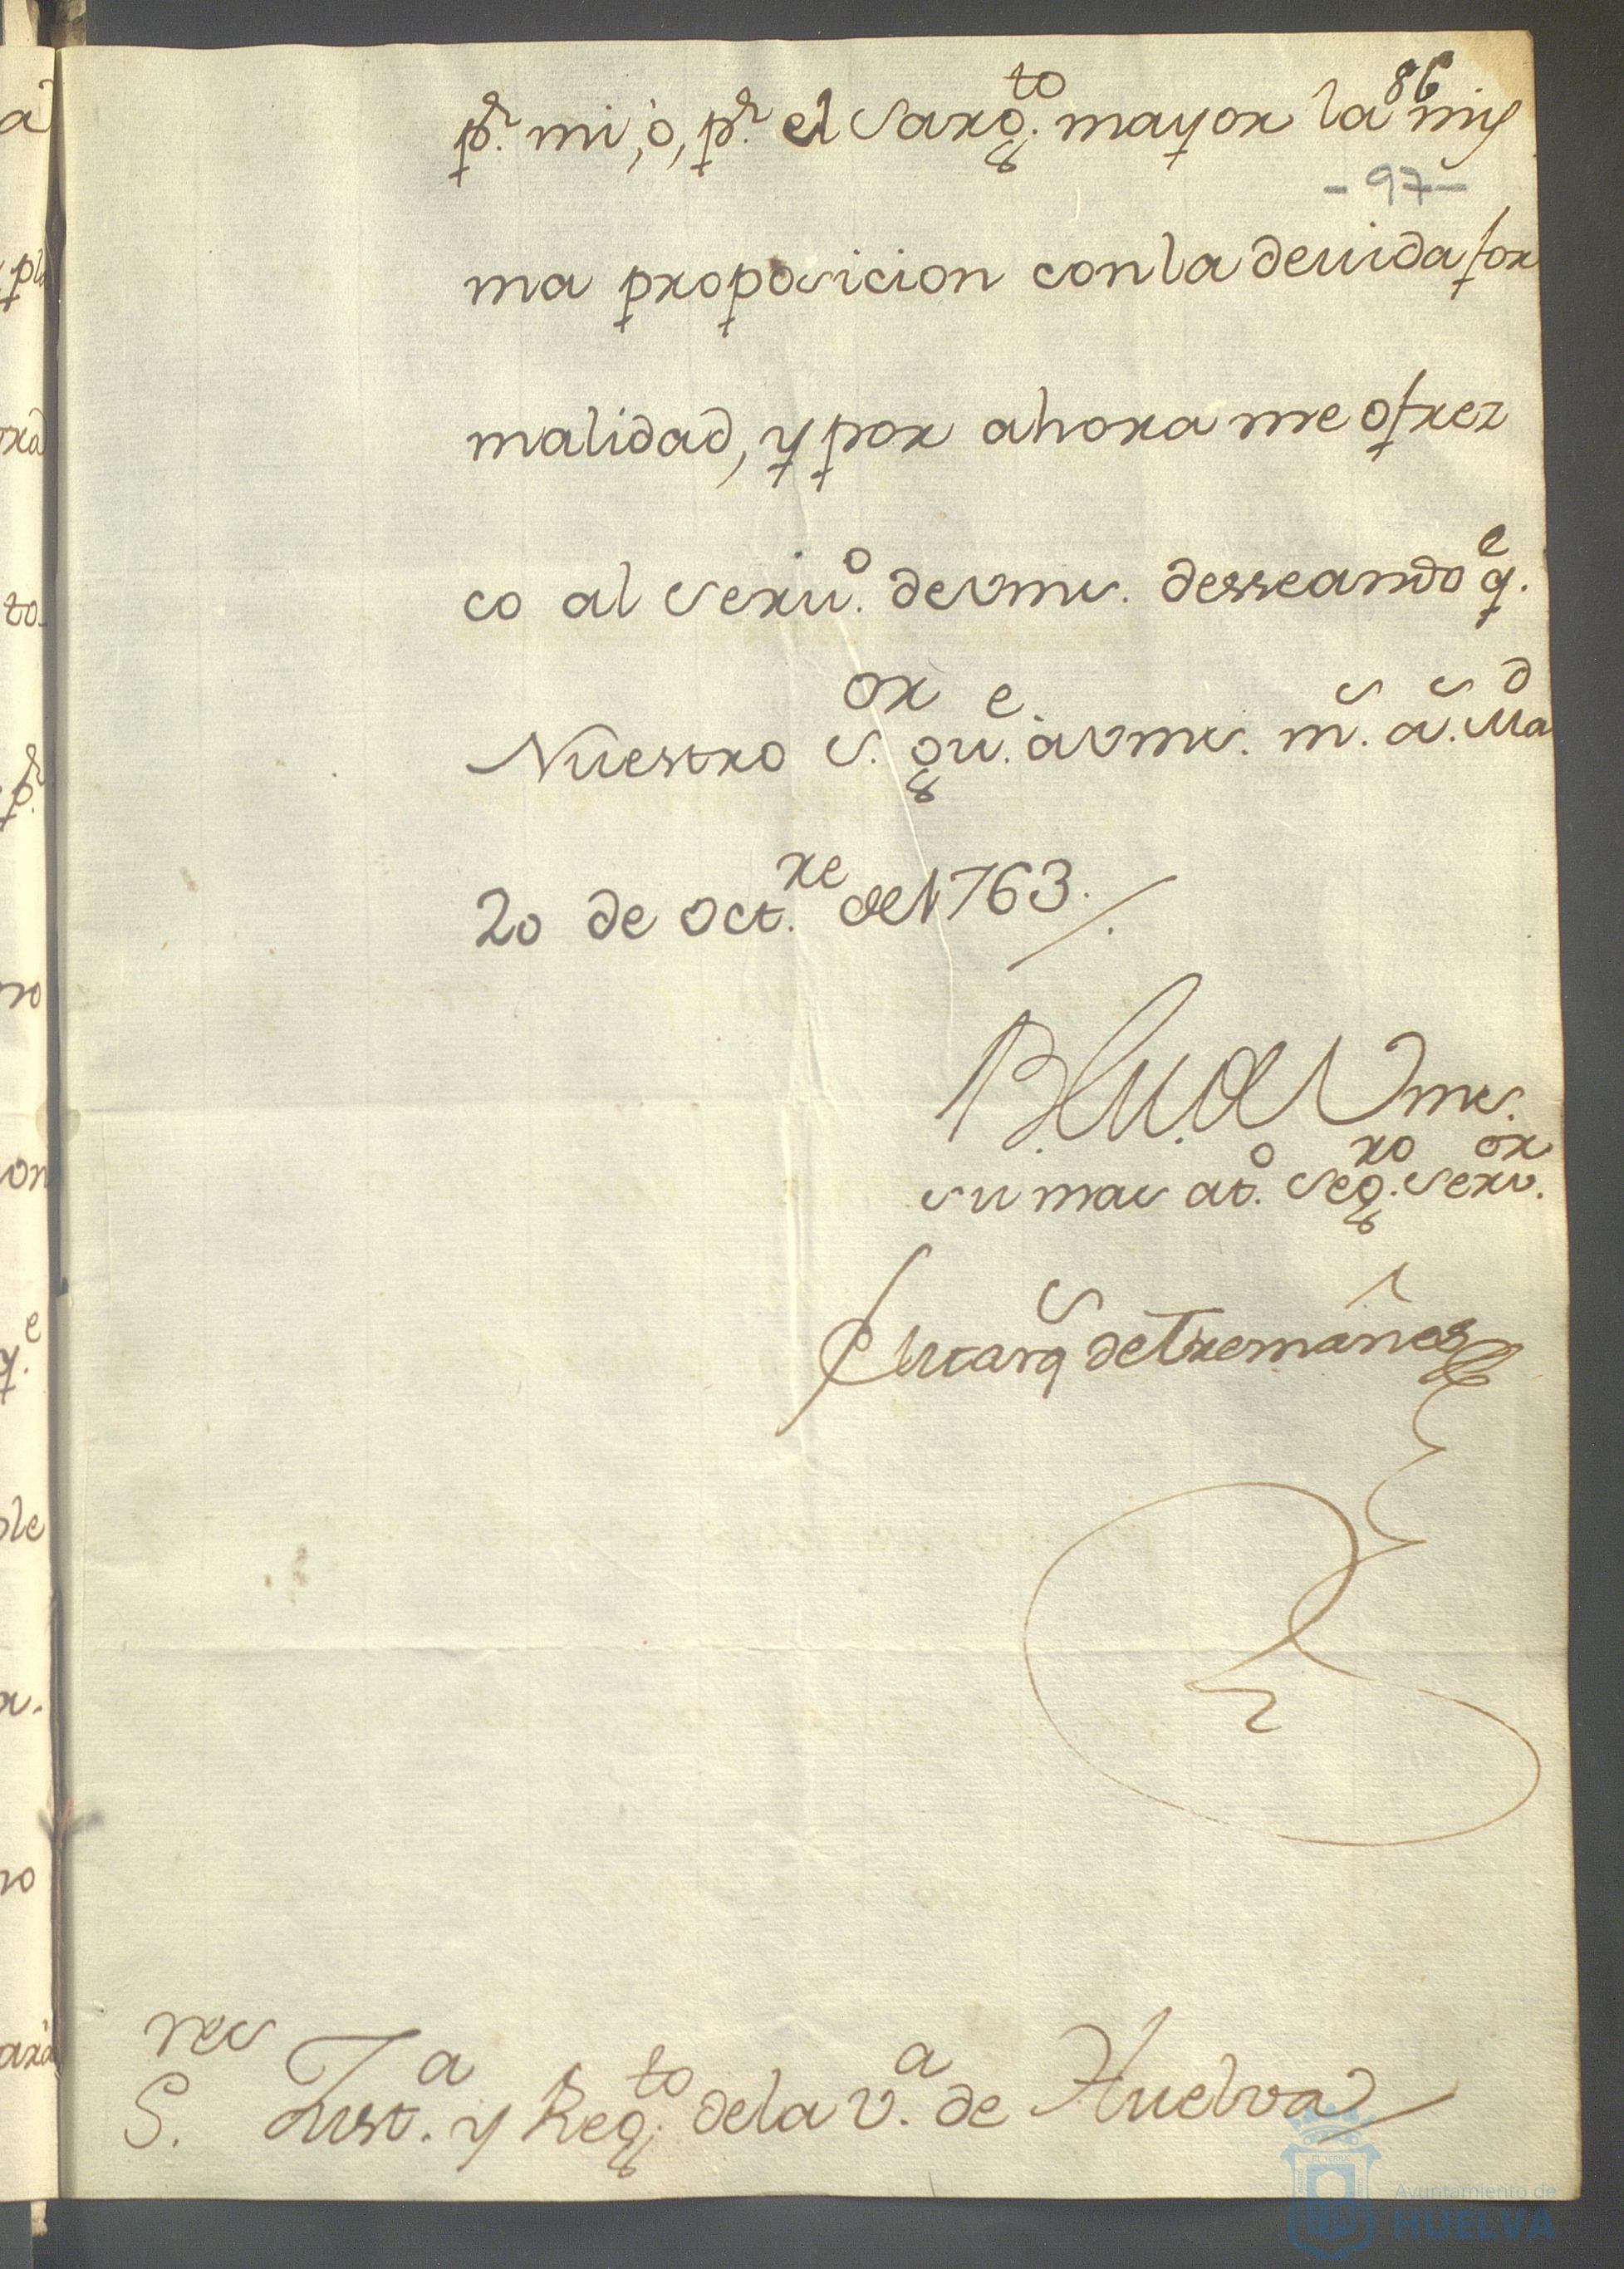 86
p.r mi, ò, p.r el Sarg.to mayor la mis
- 97 -
ma proposicion con la devida for
malidad, y por ahora me ofrez
co al Serv.o de Vms. desseando q.e
Nuestro S.or gu.e à Vms. m.s a.s Ma.d
20 de Oct.re de 1763.
B. L. M. de Vms.
su mas at.o Seg.ro Serv.or
El Marq.s de Tremañes
S.res Just.a y Reg.to de la V.a de Huelva
Ayuntamiento de
HUELVA